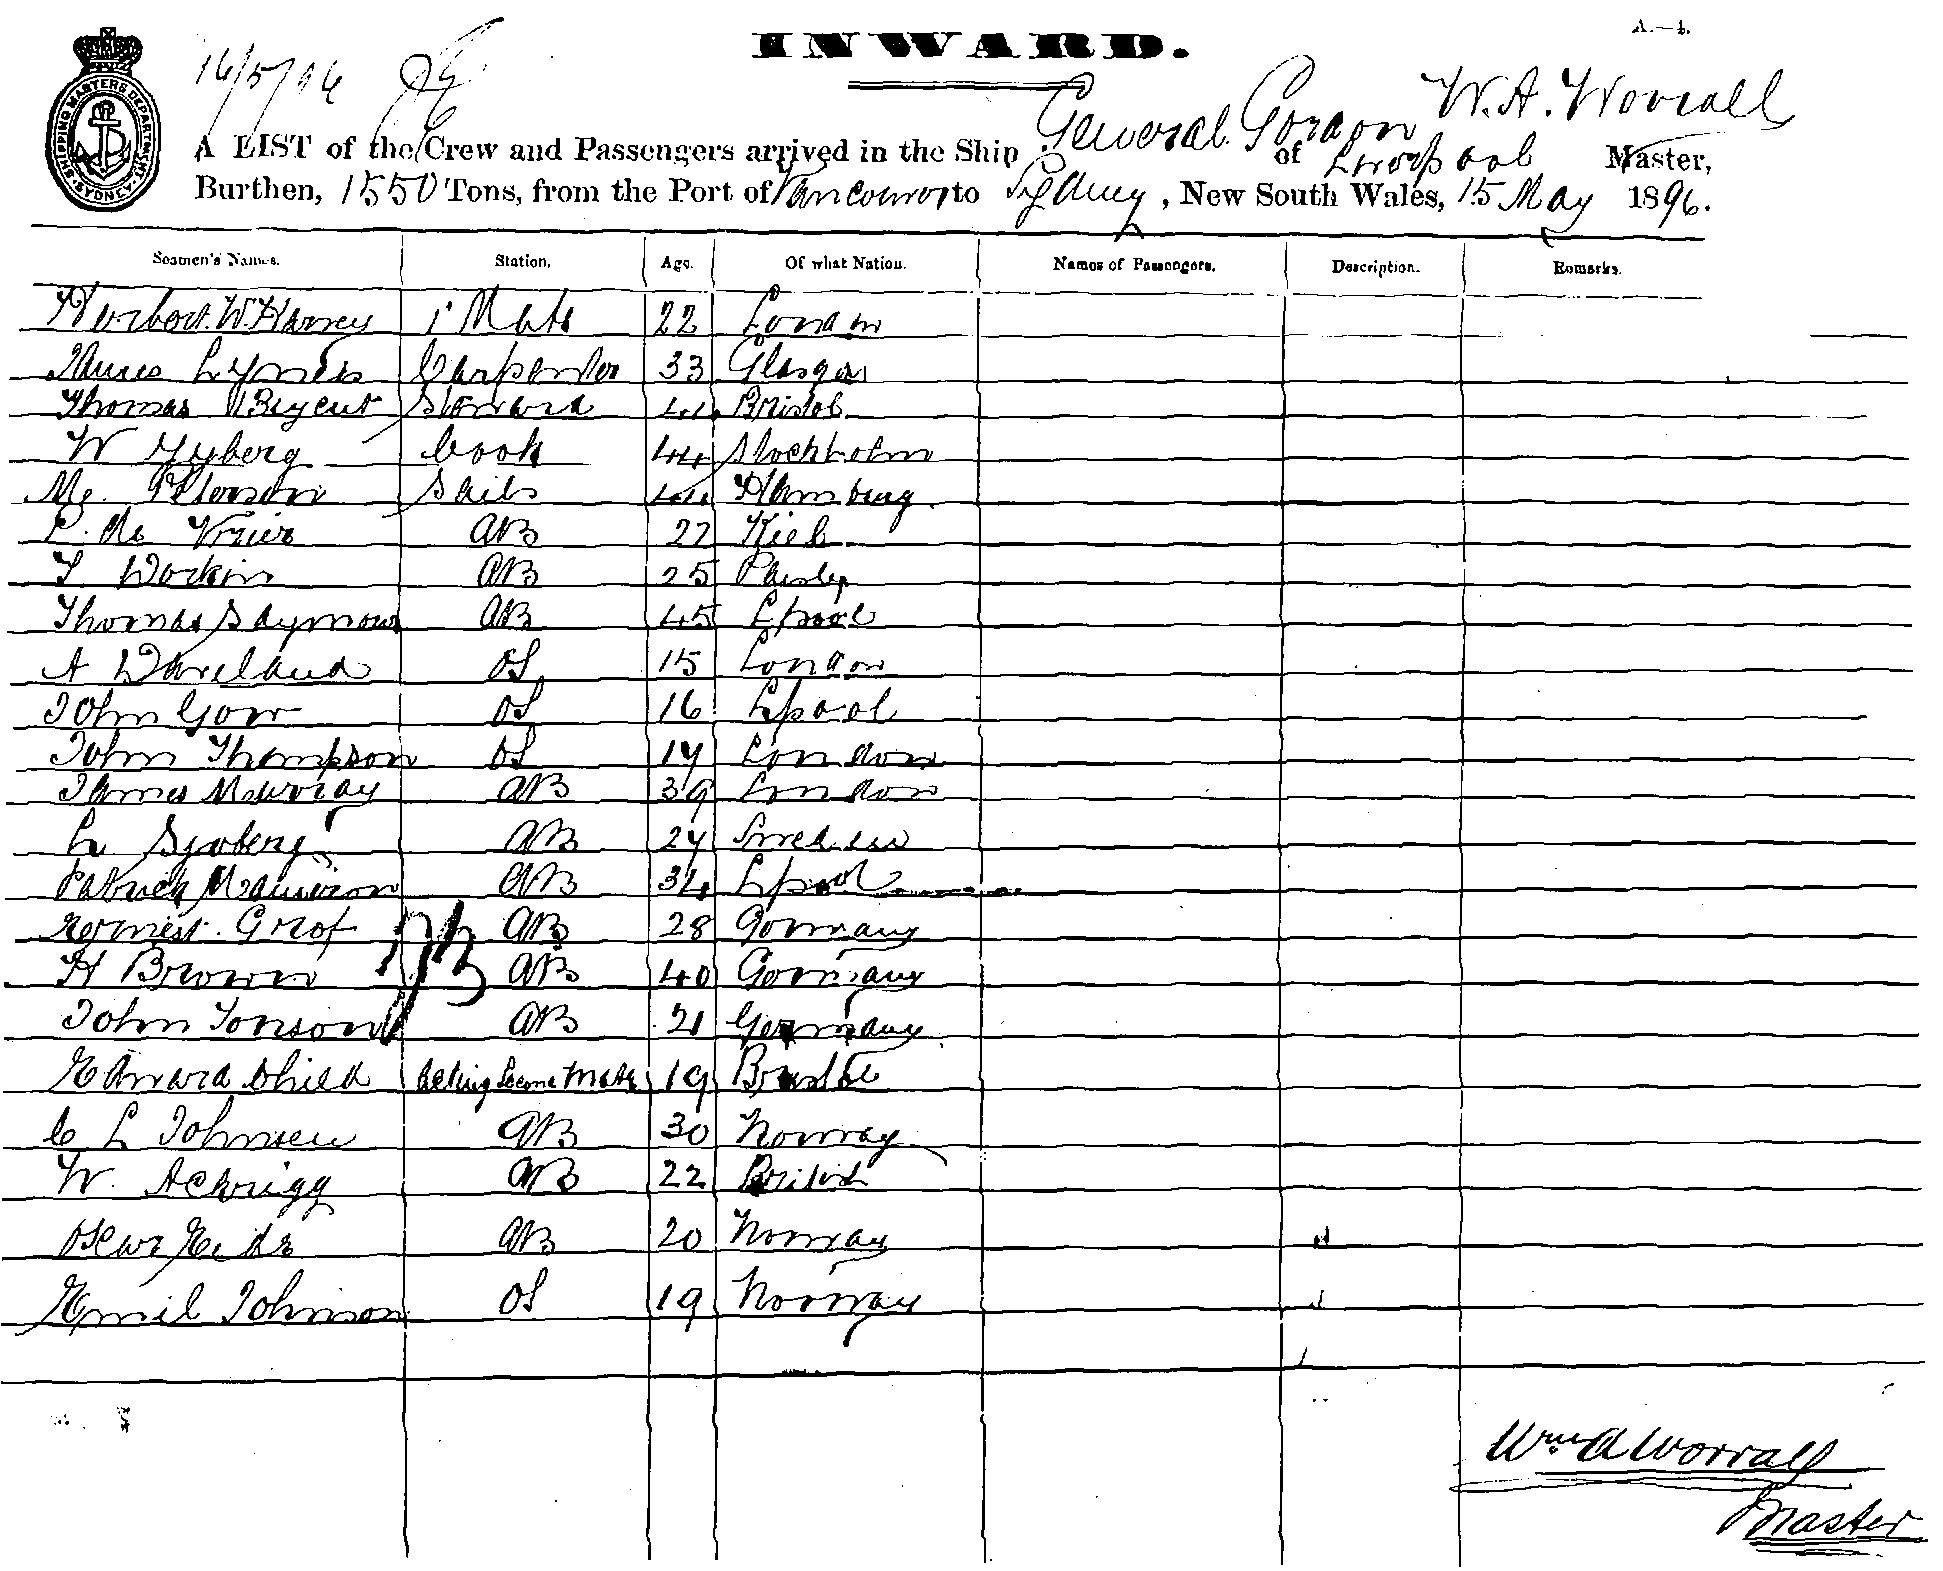 INWARD.
A.—4.
16/5/96
SHIPPING MASTERS DEPARTMENT · SYDNEY ·
A LIST of the Crew and Passengers arrived in the Ship General Gordon of Liverpool W. A. Worrall Master,
Burthen, 1550 Tons, from the Port of Vancouver to Sydney, New South Wales, 15 May 1896.
Seamen's Names. Station. Age. Of what Nation. Names of Passengers. Description. Remarks.
Herbert W. Harvey 1 Mate 22 London
James Carpenter 33 Glasgow
Thomas Steward 44 Bristol
W Cook 44 Stockholm
Peterson Sails 44 Hamburg
de Vrier AB 27 Kiel
AB 25 Paisley
Thomas Saymour AB 45 Lpool
A OS 15 London
John Gow OS 16 Lpool
John Thompson OS 17 London
James Murray AB 39 London
L. Syoberg AB 24 Sweden
Patrick AB 34 Lpool
Ernest Grof AB 28 Germany
H Brown AB 40 Germany
John Jonson AB 21 Germany
Edward Child Acting Second Mate 19 Bristol
C L Johnsen AB 30 Norway
W. Ackrigg AB 22 British
Oscar Eide AB 20 Norway
Emil Johnson OS 19 Norway
Wm A Worrall
Master